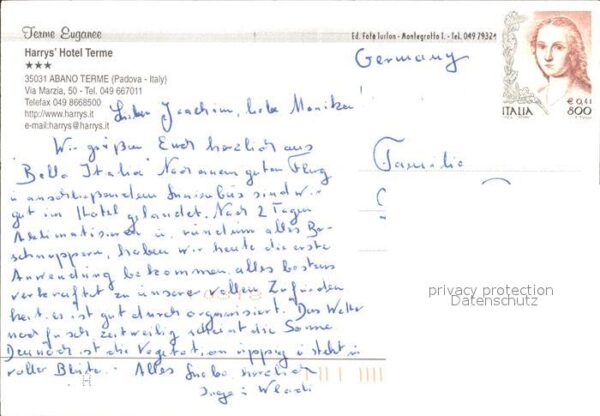 Terme Euganee
Harrys' Hotel Terme
★★★
35031 ABANO TERME (Padova - Italy)
Via Marzia, 50 - Tel. 049 667011
Telefax 049 8668500
http://www.harrys.it
e-mail:harrys@harrys.it
Ed. Foto Turlon - Montegrotto T. - Tel. 049 79324
Germany
ITALIA
€ 0,41
800
Lieber Joachim, liebe Monika!
Wir grüßen Euch herzlich aus
"Bella Italia" Nach einem guten Flug
u anschließendem Minibus sind wir
gut im Hotel gelandet. Nach 2 Tagen
Akklimatisieren u. rundum alles Be-
schnuppern, haben wir heute die erste
Anwendung bekommen, alles bestens
verkraftet zu unserer vollen Zufrieden
heit. es ist gut durch organisiert. Das Wetter
noch frisch zeitweilig scheint die Sonne
Dennoch ist die Vegetation üppig u steht in
voller Blüte. - Alles Liebe herzlich
Inge u Wladi
Familie
privacy protection
Datenschutz